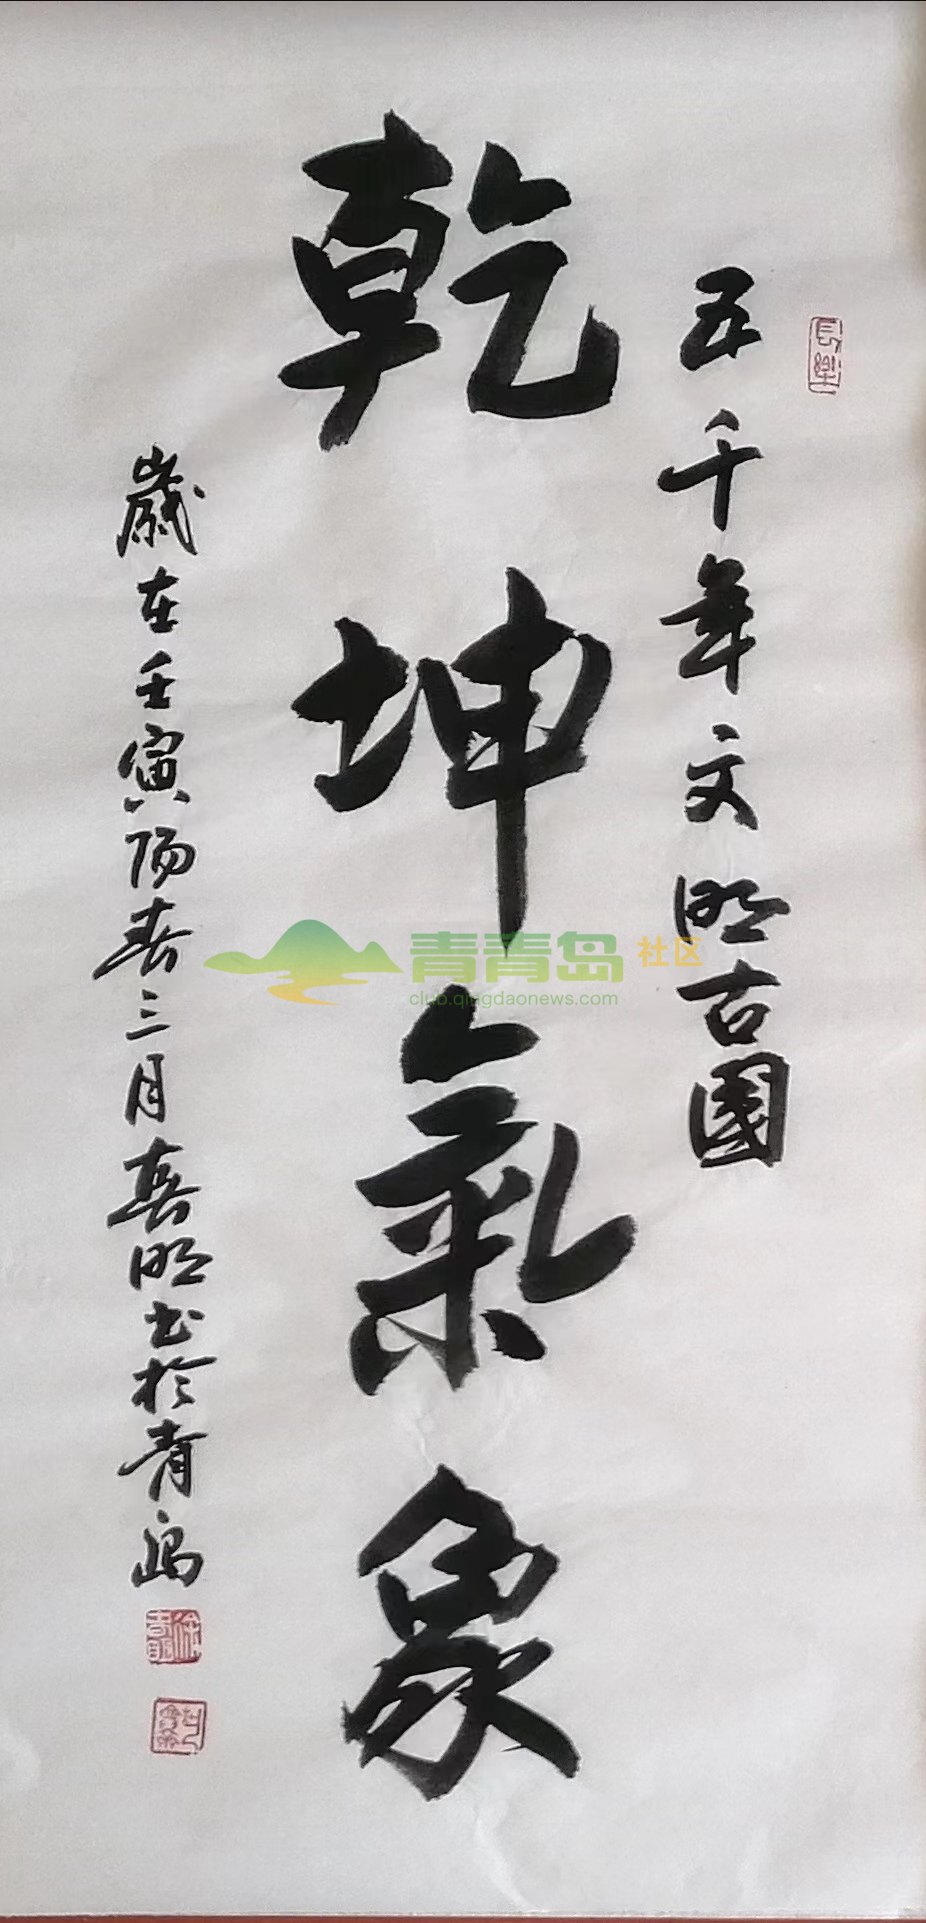 長樂
五千年文明古國
乾坤氣象
歲在壬寅陽春三月喜明书於青島
青青岛社区
club.qingdaonews.com